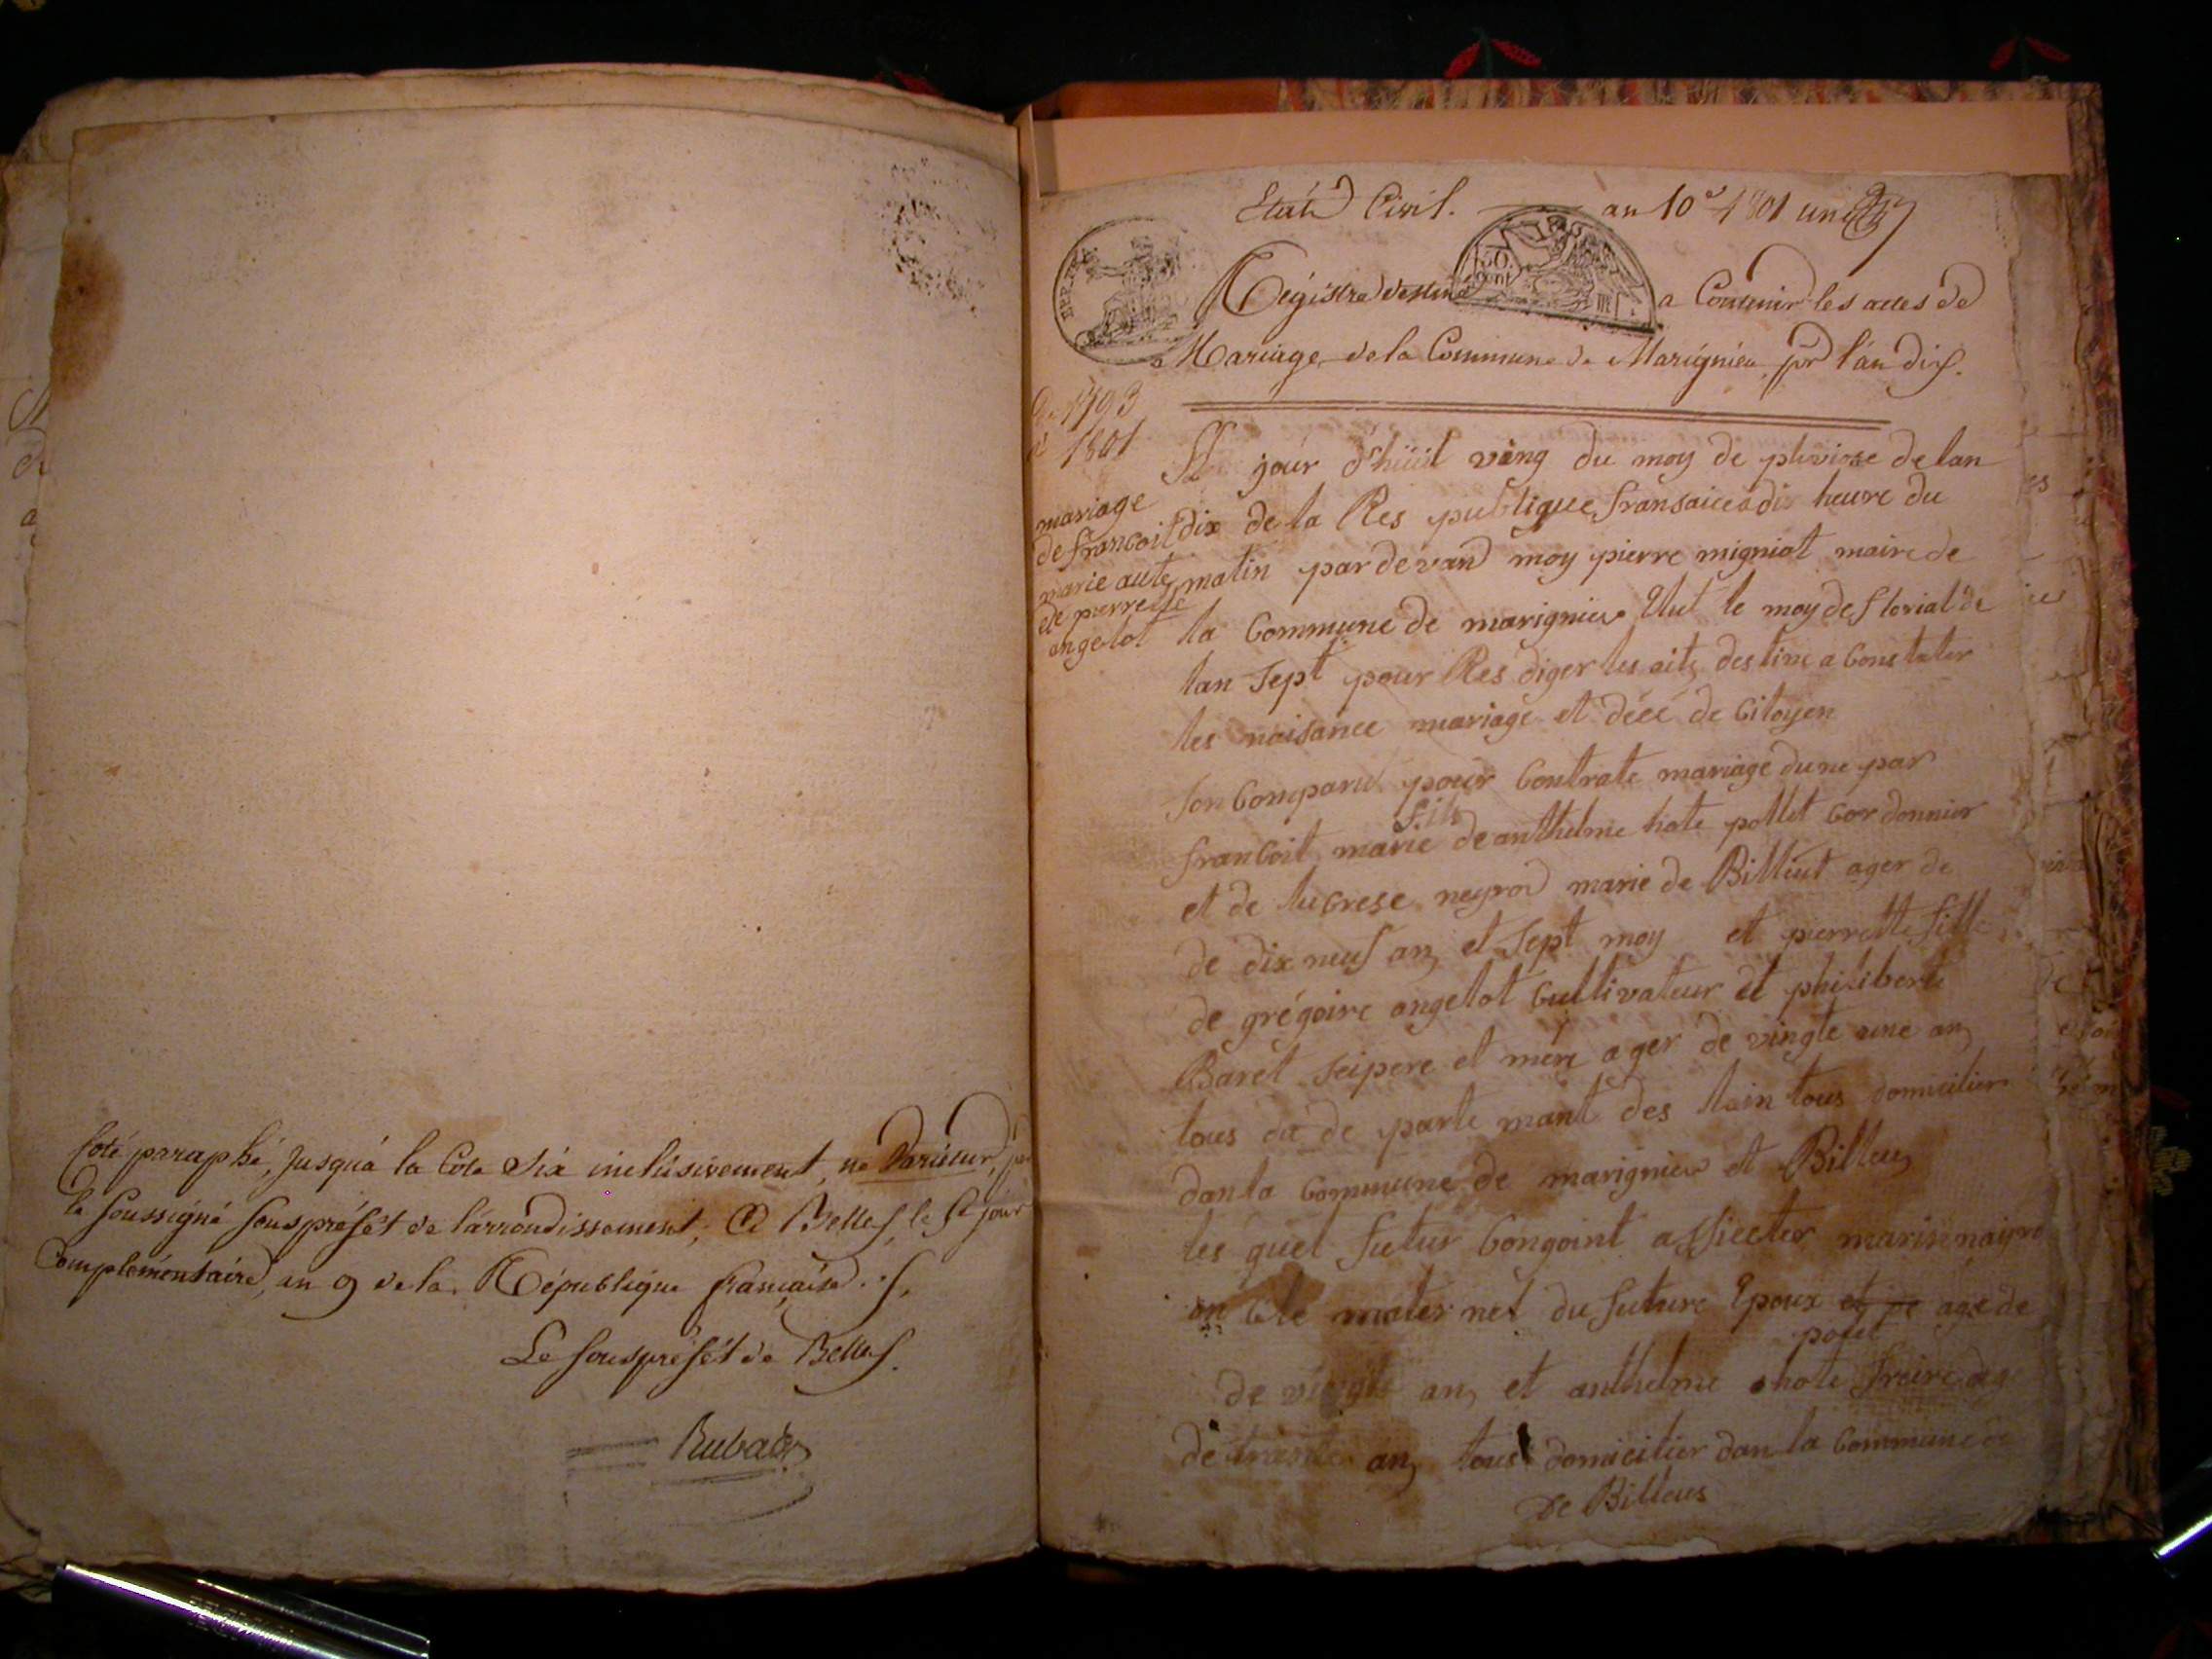 Coté paraphé, jusqu'à la Cote Six inclusivement, ne Varietur, par
le soussigné souspréfét de l'arrondissement, A Belley, le 5e jour
Complémentaire, an 9 de la République française.
Le souspréfét de Belley.
Rubat
Etat Civil. an 10e 1801 un
REP. FRA.
Régistre destiné a Contenir les actes de
Mariage de la Commune de Marignieu pr l'an dix.
De 1793
a 1801
mariage
de francoit
marie aute
et de pierrette
angelot
jour d'huit ving du moy de pluviose de lan
dix de la Res publique fransaice a dis heure du
matin par devand moy pierre migniot maire de
la Commune de marignieu Elut le moy de florial de
lan sept pour Res diger les aits destine a Constater
les naisance mariage et décé de Citoyen
son Comparu pour Contrate mariage dune par
francoit marie fils de anthelme hote pollet Cordonnier
et de lucrese neyrod marie de Billieut ager de
de dix neuf an et sept moy et pierrette fille
de grégoire angelot Cultivateur et philiberte
Baret sei pere et mere ager de vingte une an
tous du de parte mant des lain tous domicilier
dan la Commune de marignieu et Billeu
les quel futur Congoint assiecter marin nayrod
on Cle maternel du future Epoux et de age de
de vingte an et anthelme hote polet freire age
de trante an tous domicilier dan la Commune de
de Billeus